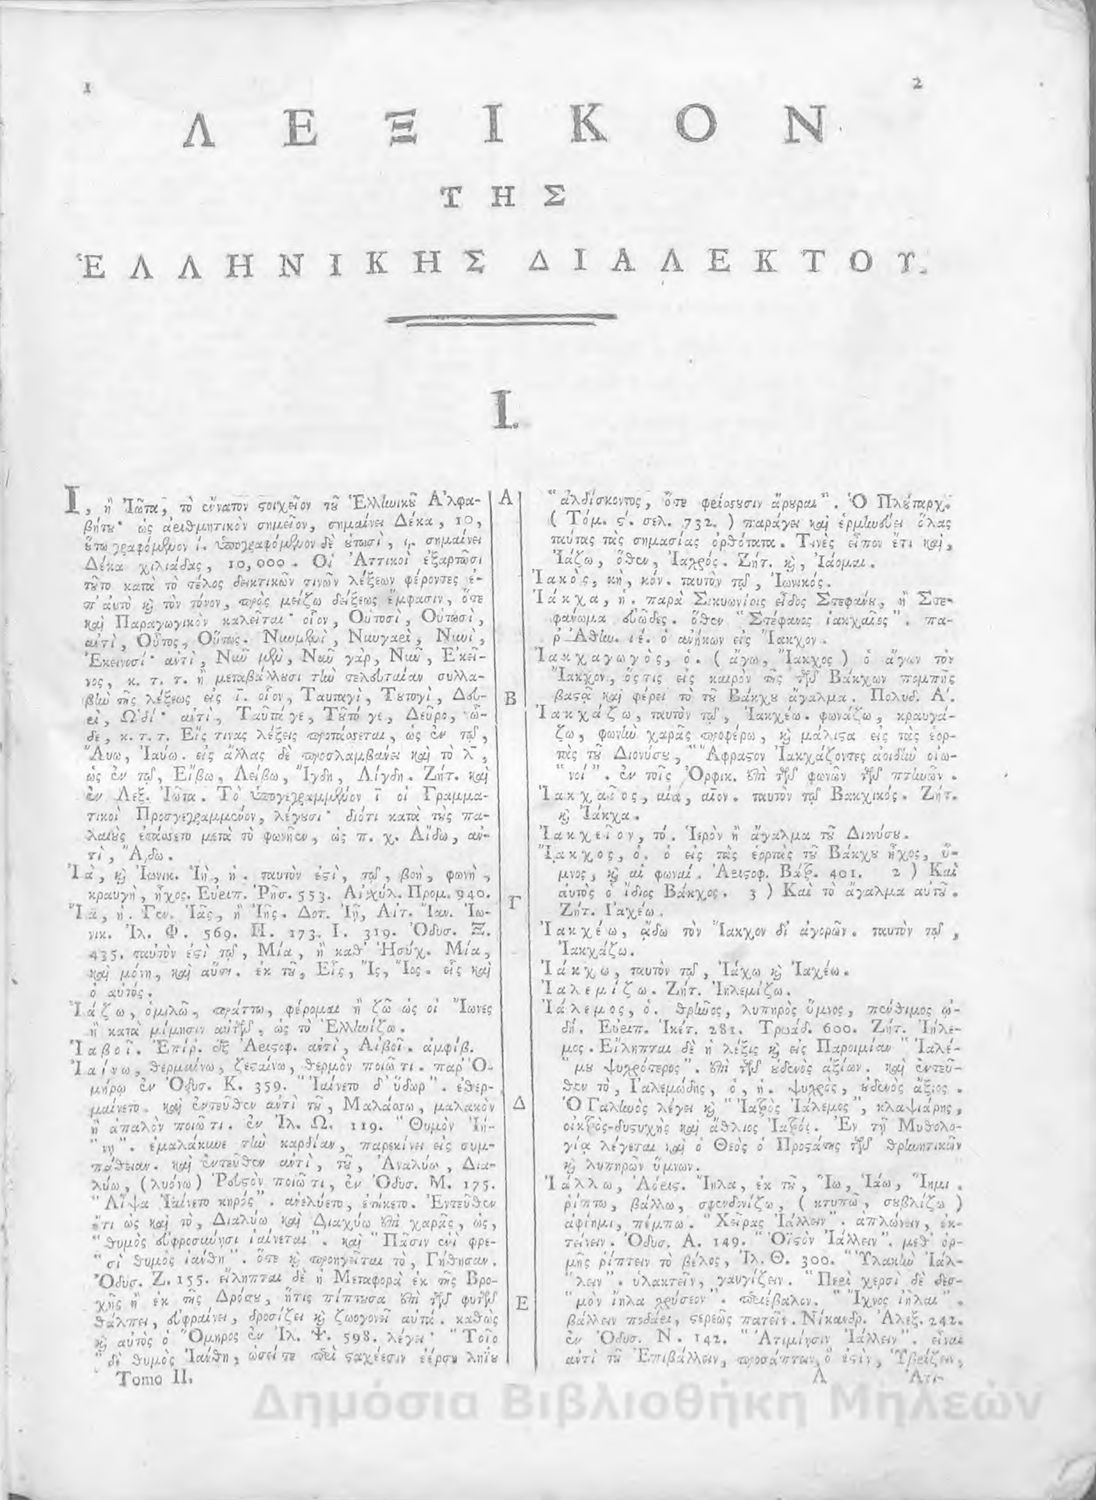 1 2
ΛΕΞΙΚΟΝ
ΤΗΣ
ἙΛΛΗΝΙΚΗΣ ΔΙΑΛΕΚΤΟΥ.
I.
Ι, ἢ Ἰῶτα, τὸ ἔννατον ϛοιχεῖον τȣ͂ Ἑλληνικȣ͂ Ἀλφα-
βήτȣ· ὡς ἀριθμητικὸν σημεῖον, σημαίνει Δέκα, 10,
ȣ̔́τω γραφόμενον ί. ὑπογραφόμενον δὲ ȣ̔τωσὶ, ͵ι. σημαίνει
Δέκα χιλιάδας, 10,000. Οἱ Ἀττικοὶ ἐξαρτῶσι
τȣ͂το κατὰ τὸ τέλος δεικτικῶν τινῶν λέξεων φέροντες ἐ-
π' αὐτὸ καὶ τὸν τόνον, πρὸς μείζω δείξεως ἔμφασιν, ὅτε
καὶ Παραγωγικὸν καλεῖται· οἷον, Οὑτοσὶ, Οὑτωσὶ,
ἀντὶ, Οὗτος, Οὕτως. Νυνμενὶ, Νυνγαρὶ, Νυνὶ,
Ἐκεινοσί· ἀντὶ, Νῦν μὲν, Νῦν γὰρ, Νῦν, Ἐκεῖ-
νος, κ. τ. τ. ἢ μεταβάλλȣσι τὴν τελευταίαν συλλα-
βὴν τῆς λέξεως εἰς ί. οἷον, Ταυταγὶ, Τȣτογὶ, Δευ-
ρὶ, Ὡδί· ἀντὶ, Ταῦτά γε, Τȣ͂τό γε, Δεῦρο, ὧ-
δε, κ. τ. τ. Εἴς τινας λέξεις προτάσσεται, ὡς ἐν τῷ,
Αὔω, Ἰαύω. εἰς ἄλλας δὲ προσλαμβάνει καὶ τὸ λ,
ὡς ἐν τῷ, Εἴβω, Λείβω, Ἴγδη, Λίγδη. Ζήτ. καὶ
ἐν Λεξ. Ἰῶτα. Τὸ ὑπογεγραμμένον ι οἱ Γραμμα-
τικοὶ Προσγεγραμμένον, λέγȣσι· διότι κατὰ τȣ̀ς πα-
λαιȣ̀ς ἐτάσσετο μετὰ τὸ φωνῆεν, ὡς π. χ. Ἄϊδω, ἀν-
τὶ, ᾌδω.
Ἰὰ, καὶ Ἰωνικ. Ἰὴ, ἡ. ταυτόν ἐϛὶ, τῷ, βοὴ, φωνὴ,
κραυγὴ, ἦχος. Εὐριπ. Ῥῆσ. 553. Αἰσχύλ. Προμ. 940.
Ἴα, ἡ. Γεν. Ἰᾶς, ἢ Ἰῆς. Δοτ. Ἰῇ, Αἰτ. Ἴαν. Ἰω-
νικ. Ἰλ. Φ. 569. Π. 173. Ι. 319. Ὀδυσ. Ξ.
435. ταυτὸν ἐϛὶ τῷ, Μία, ἢ καθ' Ἡσύχ. Μία,
καὶ μόνη, καὶ αὕτη. ἐκ τȣ͂, Εἷς, Ἲς, Ἴος. εἷς καὶ
ὁ αὐτός.
Ἰάζω, ὁμιλῶ, πράττω, φέρομαι ἢ ζῶ ὡς οἱ Ἴωνες
ἢ κατὰ μίμησιν αὐτῶν, ὡς τὸ Ἑλληνίζω.
Ἰαβοῖ. Ἐπίρ. παρ' Ἀριϛοφ. ἀντὶ, Αἰβοῖ. ἀμφίβ.
Ἰαίνω, θερμαίνω, ζεσαίνω, θερμὸν ποιῶ τι. παρ' Ὁ-
μήρῳ ἐν Ὀδυσ. Κ. 359. "Ἰαίνετο δ' ὕδωρ". ἐθερ-
μαίνετο. καὶ ἐντεῦθεν ἀντὶ τȣ͂, Μαλάσσω, μαλακὸν
ἢ ἁπαλὸν ποιῶ τι. ἐν Ἰλ. Ω. 119. "Θυμὸν Ἰή-
"νῃ". ἐμαλάκυνε τὴν καρδίαν, παρεκίνει εἰς συμ-
πάθειαν. καὶ ἐντεῦθεν ἀντὶ, τȣ͂, Ἀναλύω, Δια-
λύω, (λυόνω) Ῥευϛὸν ποιῶ τι, ἐν Ὀδυσ. Μ. 175.
"Αἶψα Ἰαίνετο κηρός". ἀνελύετο, ἐτήκετο. Ἐντεῦθεν
ἔτι ὡς καὶ τὸ, Διαλύω καὶ Διαχύω ἐπὶ χαρᾶς, ὡς,
"Θυμὸς εὐφροσύνῃσι ἰαίνεται". καὶ "Πᾶσιν ἐνὶ φρε-
"σὶ θυμὸς ἰάνθη". ὅτε καὶ προηγεῖται τὸ, Γήθησαν.
Ὀδυσ. Ζ. 155. εἴληπται δὲ ἡ Μεταφορὰ ἐκ τῆς Βρο-
χῆς ἢ ἐκ τῆς Δρόσȣ, ἥτις πίπτȣσα ἐπὶ τῶν φυτῶν
θάλπει, εὐφραίνει, δροσίζει καὶ ζωογονεῖ αὐτά. καθὼς
καὶ αὐτὸς ὁ Ὅμηρος ἐν Ἰλ. Ψ. 598. λέγει· "Τοῖο
"δὲ θυμὸς Ἰάνθη, ὡσεί τε περὶ ϛαχύεσσιν ἐέρσῃ ληΐȣ
Tomo II.
Α
Β
Γ
Δ
Ε
"ἀλδήσκοντος, ὅτε φρίσσȣσιν ἄρȣραι". Ὁ Πλȣ́ταρχ.
(Τόμ. ϛ. σελ. 732.) παράγει καὶ ἑρμηνεύει ὅλας
ταύτας τὰς σημασίας ὀρθότατα. Τινὲς εἶπον ἔτι καὶ,
Ἰάζω, ὅθεν, Ἰατρός. Ζήτ. καὶ, Ἰάομαι.
Ἰακὸς, κὴ, κόν. ταυτὸν τῷ, Ἰωνικός.
Ἰάκχα, ἡ. παρὰ Σικυωνίοις εἶδος Στεφάνȣ, ἢ Στε-
φάνωμα εὐῶδες. ὅθεν "Στέφανος ἰακχαῖος". πα-
ρ' Ἀθην. ιέ. ὁ ἀνήκων εἰς Ἴακχον.
Ἰακχαγωγὸς, ὁ. (ἄγω, Ἴακχος) ὁ ἄγων τὸν
Ἴακχον, ὅϛις εἰς καιρὸν τῆς τῶν Βάκχων πομπῆς
βαϛᾷ καὶ φέρει τὸ τȣ͂ Βάκχȣ ἄγαλμα. Πολυδ. Α'.
Ἰακχάζω, ταυτὸν τῷ, Ἰακχέω. φωνάζω, κραυγά-
ζω, φωνὴν χαρᾶς προφέρω, καὶ μάλιϛα εἰς τὰς ἑορ-
τὰς τȣ͂ Διονύσȣ, "Ἄφραϛον Ἰακχάζοντες ἀοιδὴν οἰω-
"νοί". ἐν τοῖς Ὀρφικ. ἐπὶ τῶν φωνῶν τῶν πτηνῶν.
Ἰακχαῖος, αία, αῖον. ταυτὸν τῷ Βακχικός. Ζήτ.
καὶ Ἰάκχα.
Ἰακχεῖον, τό. Ἱερὸν ἢ ἄγαλμα τȣ͂ Διονύσȣ.
Ἴακχος, ὁ. ὁ εἰς τὰς ἑορτὰς τȣ͂ Βάκχȣ ἦχος, ὕ-
μνος, καὶ αἱ φωναί. Ἀριϛοφ. Βάτρ. 401. 2) Καὶ
αὐτὸς ὁ ἴδιος Βάκχος. 3) Καὶ τὸ ἄγαλμα αὐτȣ͂.
Ζήτ. Ἰαχέω.
Ἰακχέω, ᾄδω τὸν Ἴακχον δι' ἀγορῶν. ταυτὸν τῷ,
Ἰακχάζω.
Ἰάκχω, ταυτὸν τῷ, Ἰάχω καὶ Ἰαχέω.
Ἰαλεμίζω. Ζήτ. Ἰηλεμίζω.
Ἰάλεμος, ὁ. θρῆνος, λυπηρὸς ὕμνος, πένθιμος ᾠ-
δή. Εὐριπ. Ἱκέτ. 281. Τρωάδ. 600. Ζήτ. Ἰήλε-
μος. Εἴληπται δὲ ἡ λέξις καὶ εἰς Παροιμίαν "Ἰαλέ-
"μȣ ψυχρότερος". ἐπὶ τῶν ȣ̓δενὸς ἀξίων. καὶ ἐντεῦ-
θεν τὸ, Ἰαλεμώδης, ὁ, ἡ. ψυχρὸς, ȣ̓δενὸς ἄξιος.
Ὁ Γαληνὸς λέγει καὶ "Ἰατρὸς Ἰάλεμος", κλαψιάρης,
οἰκτρὸς-δυϛυχὴς καὶ ἄθλιος Ἰατρός. Ἐν τῇ Μυθολο-
γίᾳ λέγεται καὶ ὁ Θεὸς ὁ Προϛάτης τῶν θρηνητικῶν
καὶ λυπηρῶν ὕμνων.
Ἰάλλω, Ἀόρις. Ἴηλα, ἐκ τȣ͂, Ἴω, Ἰάω, Ἵημι.
ῥίπτω, βάλλω, σφενδονίζω, (κτυπῶ, σεβλίζω)
ἀφίημι, πέμπω. "Χεῖρας Ἰάλλειν". ἁπλώνειν, ἐκ-
τείνειν. Ὀδυσ. Α. 149. "Ὀϊϛὸν Ἰάλλειν". μεθ' ὁρ-
μῆς ῥίπτειν τὸ βέλος, Ἰλ. Θ. 300. "Ὑλακὴν Ἰάλ-
"λειν". ὑλακτεῖν, γαυγίζειν. "Περὶ χερσὶ δὲ δεσ-
"μὸν ἴηλα χρύσεον". περιέβαλον. "Ἴχνος ἰῆλαι".
βάλλειν πόδας, ϛερεῶς πατεῖν. Νίκανδρ. Ἀλεξ. 242.
ἐν Ὀδυσ. Ν. 142. "Ἀτιμίησιν Ἰάλλειν". εἶναι
ἀντὶ τȣ͂ Ἐπιβάλλειν, προσάπτειν, ὅ ἐϛὶν, Ὑβρίζειν,
Α Ἀτι-
Δημόσια Βιβλιοθήκη Μηλεών